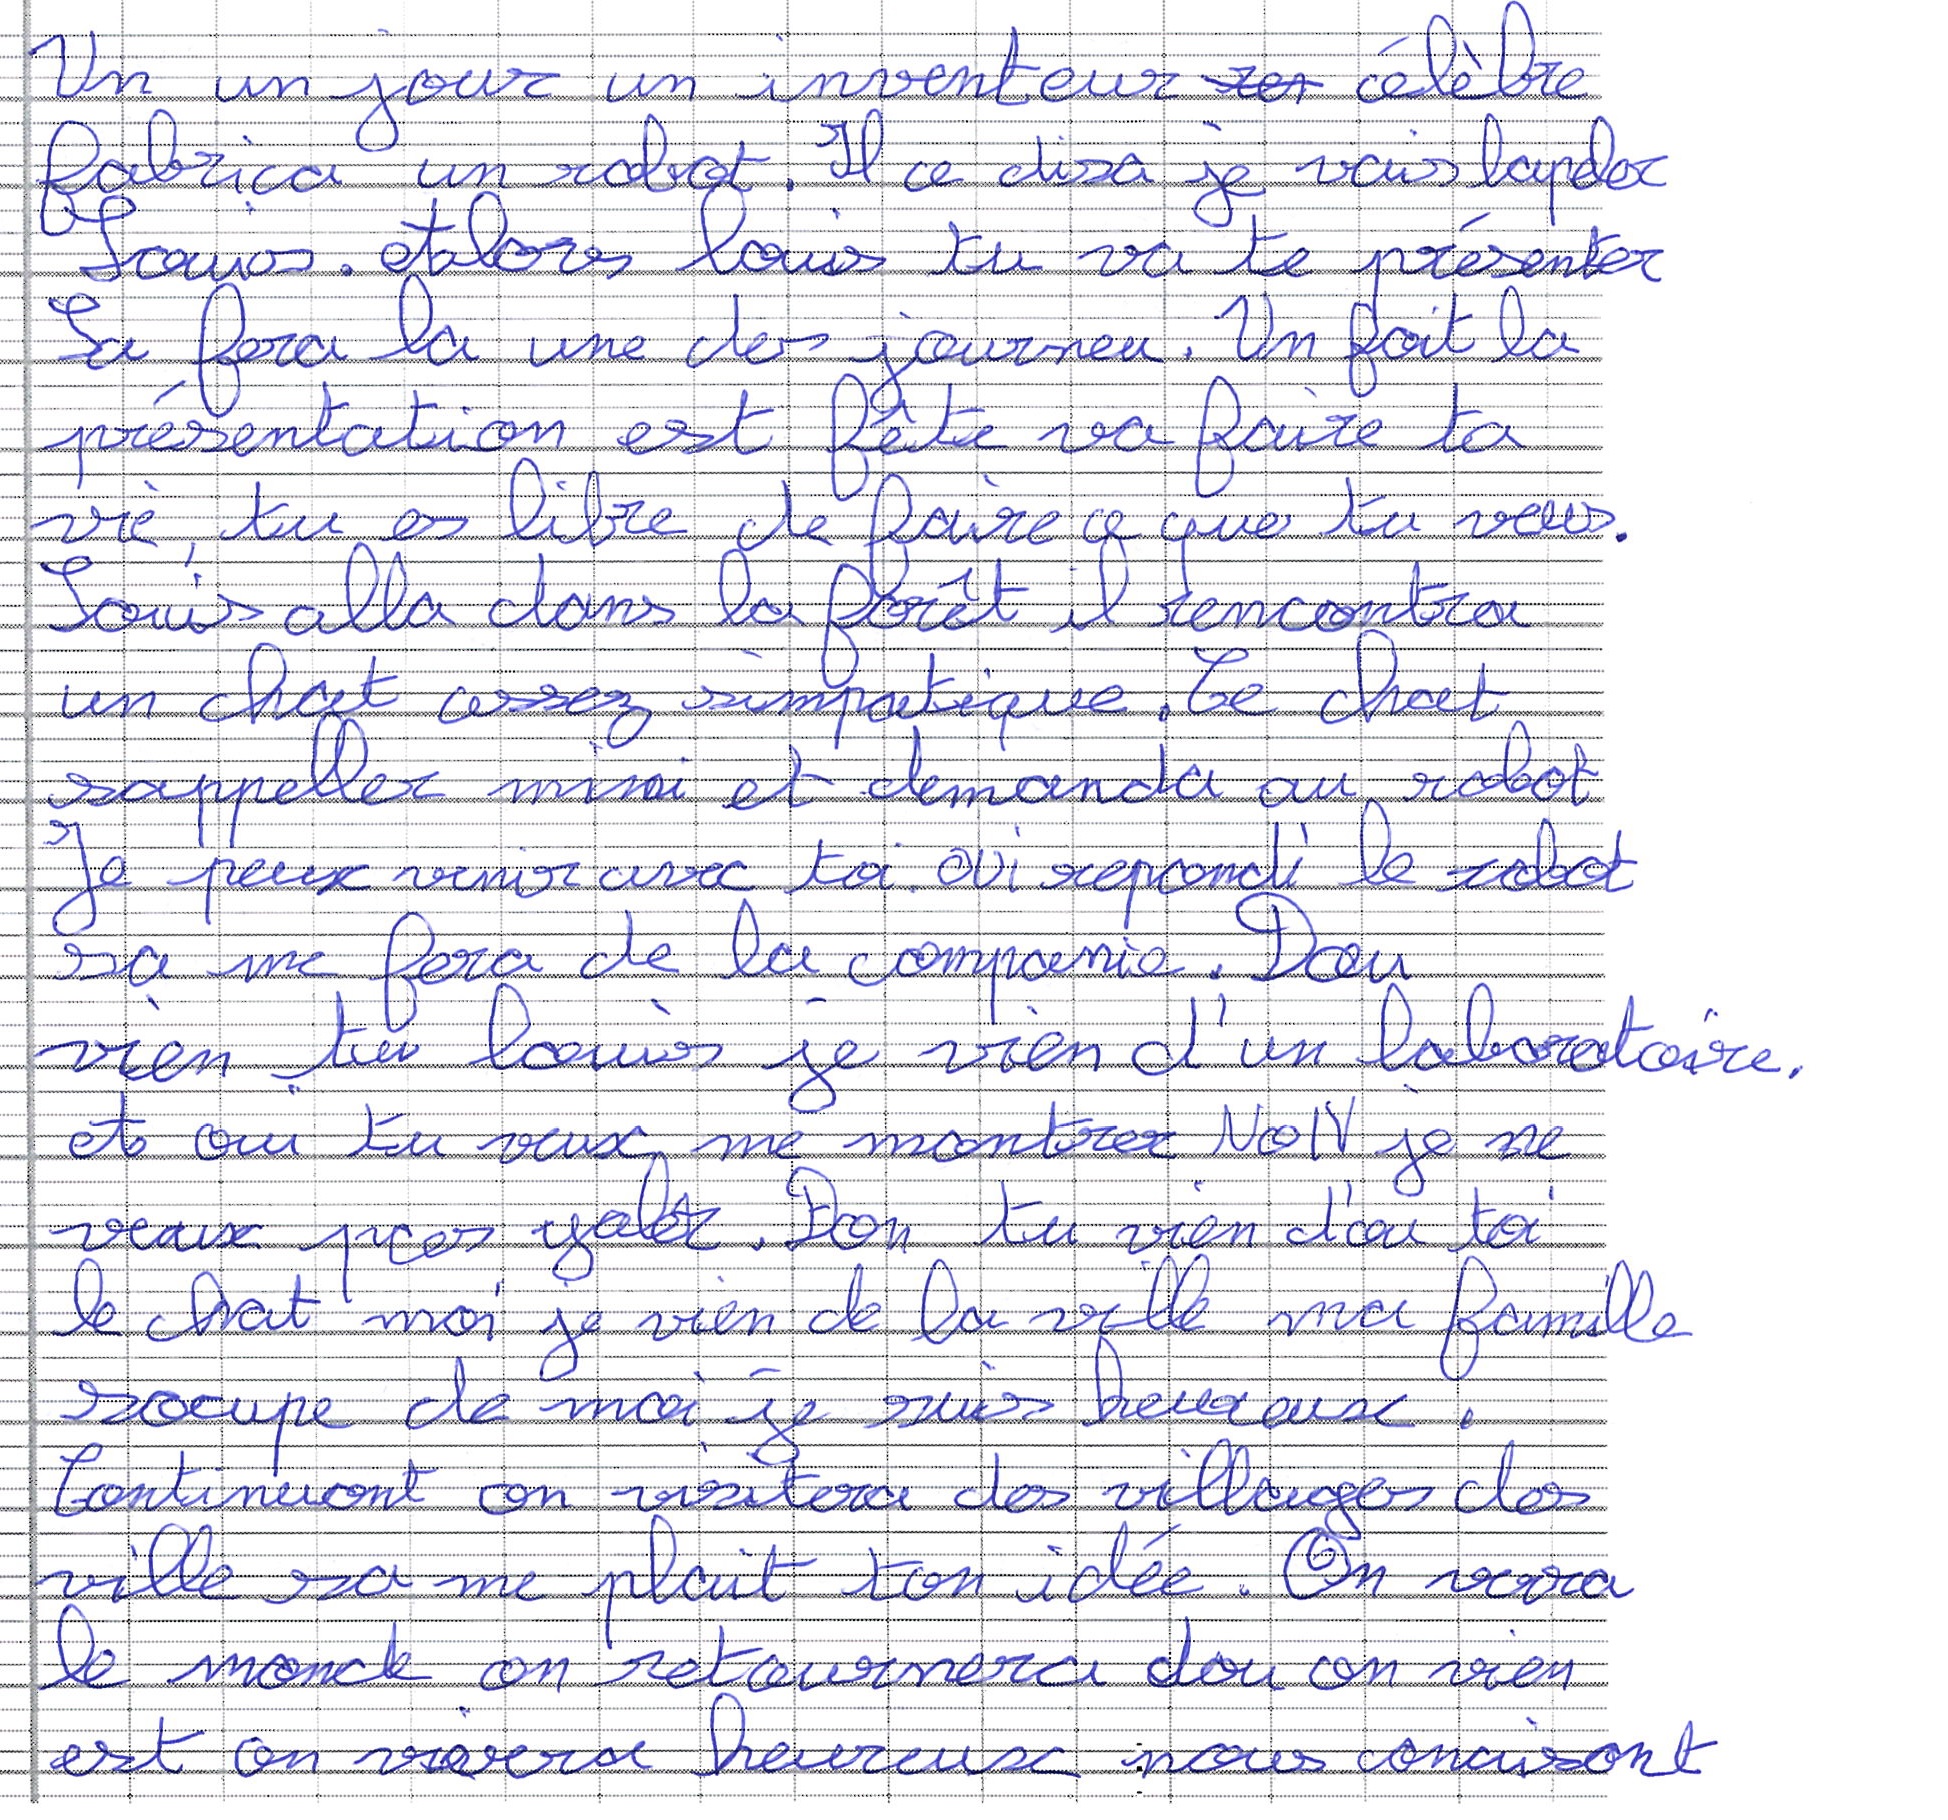 Un un jour un inventeur célèbre
fabrica un robot. Il ce disa je vais lapeler
Louis. et alors louis tu va te présenter
Sa fera la une des journeu. Un foit la
présentation est fête va faire ta
vie, tu es libre de faire ce que tu veus.
Louis alla dans la forêt il rencontra
un chat assez simpatique. Ce chat
sappeller mimi et demanda au robot
Je peux venir avec toi. oui repondi le robot
sa me fera de la companie. Dou
vien tu louis je vien d'un laboratoire.
et oui tu veux me montrer NoN je ne
veux pas yaler. Don tu vien d'ou toi
le chat moi je vien de la ville ma famille
socupe de moi je suis heureux.
Continuont on visitera des villages des
ville sa me plait ton idée. On verra
le monde on retournera dou on vien
est on vivera heureux nous conaisont